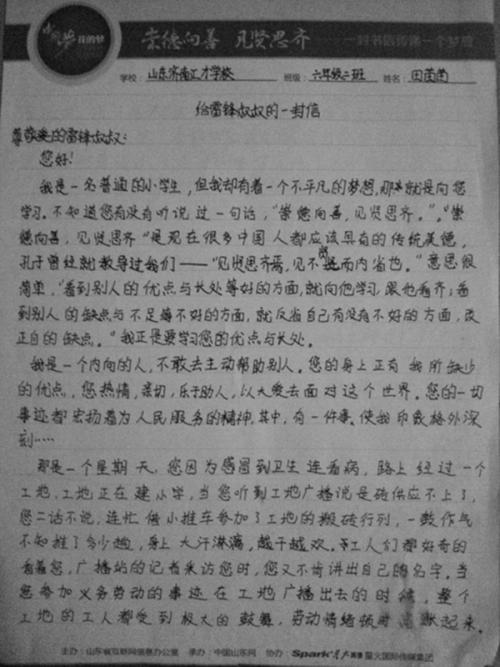 我的梦 崇德向善 见贤思齐 ——一封书信传递一个梦想
学校：山东济南工才学校 班级：六年级二班 姓名：田茵茵
给雷锋叔叔的一封信
尊敬的雷锋叔叔：
您好！
我是一名普通的小学生，但我却有着一个不平凡的梦想，那就是向您
学习。不知道您有没有听说过一句话，“崇德向善，见贤思齐。”。“崇
德向善，见贤思齐”是现在很多中国人都应该具有的传统美德，
孔子曾经就教导过我们——“见贤思齐焉，见不贤而内省也。”意思很
简单，“看到别人的优点与长处等好的方面，就向他学习，跟他看齐；看
到别人的缺点与不足等不好的方面，就反省自己有没有不好的方面，改
正自的缺点。”我正是要学习您的优点与长处。
我是一个内向的人，不敢去主动帮助别人。您的身上正有我所缺少
的优点，您热情，亲切，乐于助人，以大爱去面对这个世界。您的一切
事迹都宏扬着为人民服务的精神，其中，有一件事，使我印象格外深
刻……
那是一个星期天，您因为感冒到卫生连看病，路上经过一个
工地，工地正在建小学，当您听到工地广播说是砖供应不上了，
您二话不说，连忙借小推车参加了工地的搬砖行列，一鼓作气
不知推了多少趟，身上大汗淋漓，越干越欢。工人们都好奇的
看着您，广播站的记者采访您时，您又不肯讲出自己的名字。当
您参加义务劳动的事迹在工地广播出去的时候，整个
工地的工人都受到极大的鼓舞，劳动情绪顿时高歌起来。
主办：山东省互联网信息办公室 承办：中国山东网 协办：Spark 星火国际传媒集团